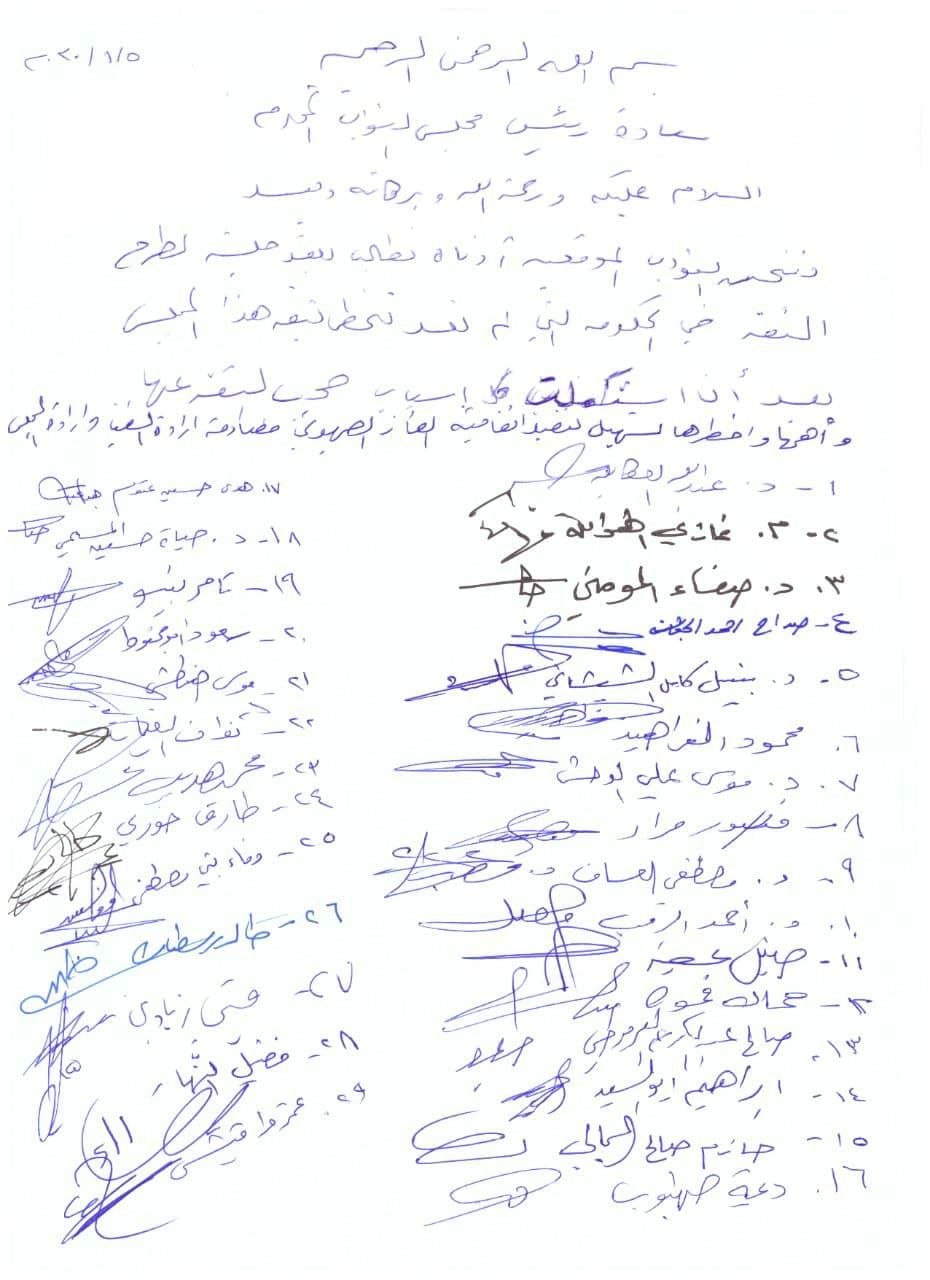 ٢٠٢٠/١/٥
بسم الله الرحمن الرحيم
سعادة رئيس مجلس النواب المحترم
السلام عليكم ورحمة الله وبركاته وبعد
فنحن النواب الموقعين أدناه نطالب بعقد جلسة لطرح
الثقة في الحكومة التي لم تعد تحظى بثقة هذا المجلس
بعد أن استكملت كل اسباب حجب الثقة عنها
وأهمها واخطرها تسهيل تنفيذ اتفاقية الغاز الصهيوني مصادمة ارادة الشعب وارادة المجلس
١- د. عبدالله العكايلة
٢- م. غازي الهواملة
٣. د. صفاء المومني
٤- صداح احمد الحباشنة
٥- د. نبيل كامل الشيشاني
٦. محمود الفراهيد
٧. د. موسى علي الوحش
٨- منصور مراد
٩- د. مصطفى العساف
١٠. د. أحمد الرقب
١١-
١٢-
١٣. صالح عبدالكريم العرموطي
١٤- ابراهيم ابوالسيد
١٥- حازم صالح المجالي
١٦. ديمة طهبوب
١٧. هدى حسين عتوم
١٨- د. حياة حسين المسيمي
١٩- تامر بينو
٢٠- سعود ابومحفوظ
٢١- موسى هنطش
٢٢- نواف
٢٣- محمد هديب
٢٤- طارق خوري
٢٥- وفاء بني مصطفى
٢٦- خالد رمضان
٢٧- قيس زيادين
٢٨- فضيل النهار
٢٩. عمر قراقيش